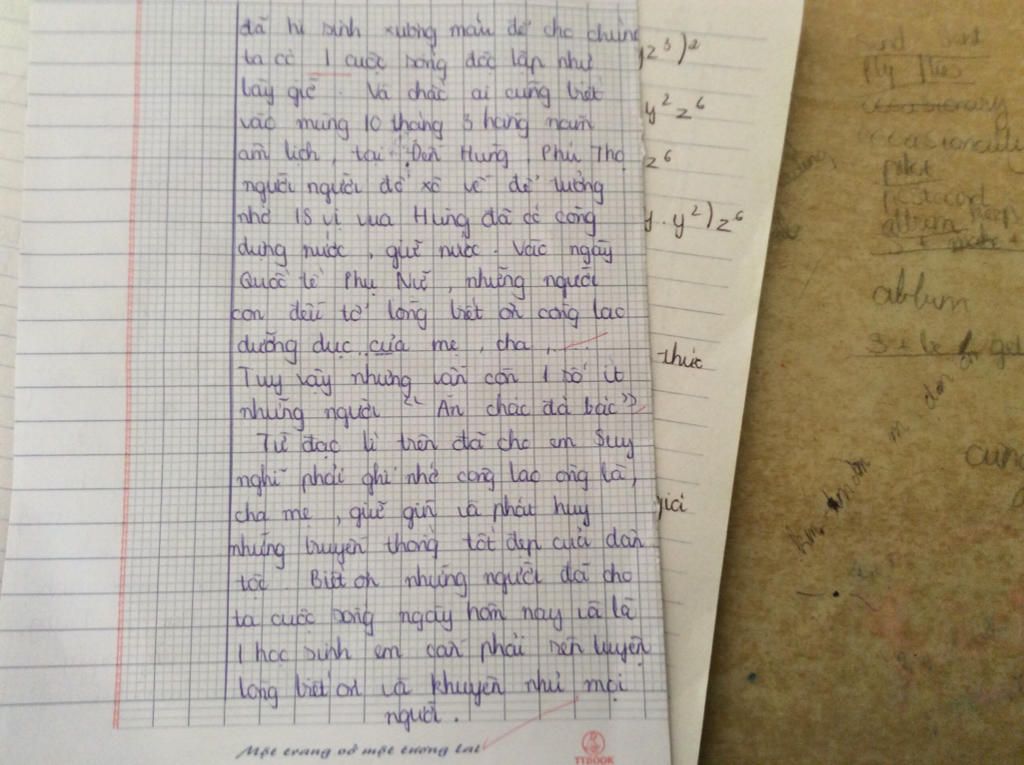 đã hi sinh xương máu để cho chúng
ta có 1 cuộc sống độc lập như
bây giờ. Và chắc ai cũng biết
vào mùng 10 tháng 3 hằng năm
âm lịch, tại Đền Hùng, Phú Thọ
người người đổ xô về để tưởng
nhớ 18 vị vua Hùng đã có công
dựng nước, giữ nước. Vào ngày
Quốc tế Phụ Nữ, những người
con đều tỏ lòng biết ơn công lao
dưỡng dục của mẹ, cha,...
Tuy vậy nhưng vẫn còn 1 số ít
những người "Ăn cháo đá bát"
Từ đạo lí trên đã cho em suy
nghĩ phải ghi nhớ công lao ông bà,
cha mẹ, giữ gìn và phát huy
những truyền thống tốt đẹp của dân
tộc. Biết ơn những người đã cho
ta cuộc sống ngày hôm nay và là
1 học sinh em cần phải rèn luyện
lòng biết ơn và khuyên nhủ mọi
người.
Một trang vở một tương lai
TTBOOK
z³)²
y²z⁶
z⁶
y.y²)z⁶
thức
pilot
postcard
album
album
cũng